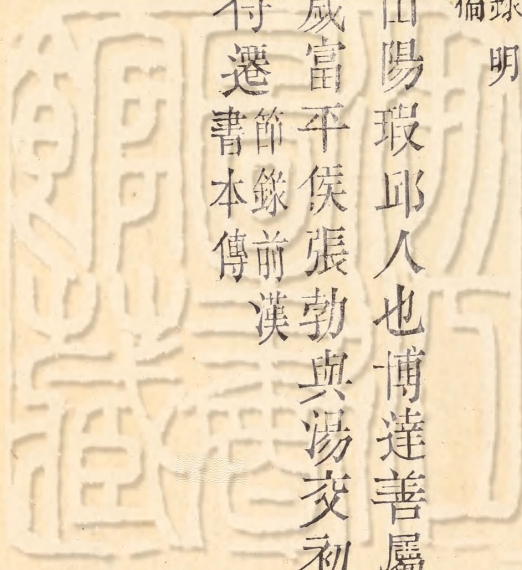 錄明
山陽瑕邱人也博達善屬
歲富平侯張勃與湯交初
待遷
節錄前漢
書本傳